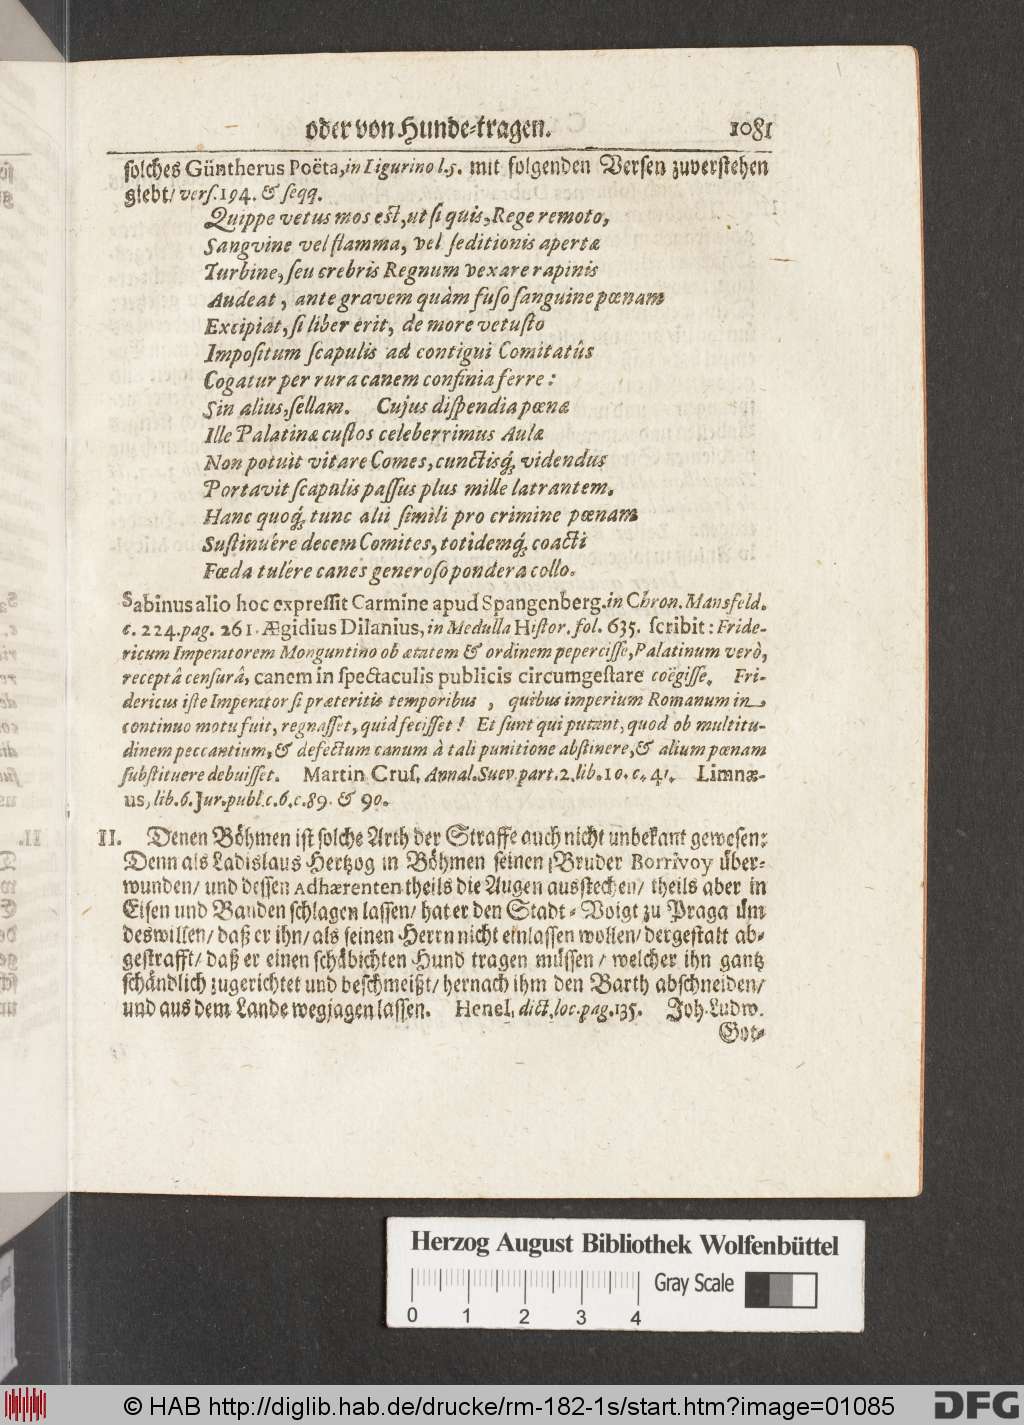 oder von Hunde-tragen. 1081
solches Güntherus Poëta, in Ligurino l.5. mit folgenden Versen zuverstehen
giebt/ vers. 194. & seqq.
Quippe vetus mos est, ut si quis, Rege remoto,
Sangvine vel flamma, vel seditionis apertæ
Turbine, seu crebris Regnum vexare rapinis
Audeat, ante gravem quàm fuso sanguine pœnam
Excipiat, si liber erit, de more vetusto
Impositum scapulis ad contigui Comitatûs
Cogatur per rura canem confinia ferre:
Sin alius, sellam. Cujus dispendia pœnæ
Ille Palatinæ custos celeberrimus Aulæ
Non potuit vitare Comes, cunctisq́; videndus
Portavit scapulis passus plus mille latrantem.
Hanc quoq́; tunc alii simili pro crimine pœnam
Sustinuére decem Comites, totidemq́; coacti
Fœda tulére canes generoso pondera collo.
Sabinus alio hoc expressit Carmine apud Spangenberg. in Chron. Mansfeld.
c. 224. pag. 261. Ægidius Dilanius, in Medulla Histor. fol. 635. scribit: Fride-
ricum Imperatorem Monguntino ob ætatem & ordinem pepercisse, Palatinum verò,
receptâ censurâ, canem in spectaculis publicis circumgestare coëgisse. Fri-
dericus iste Imperator si præteritis temporibus, quibus imperium Romanum in
continuo motu fuit, regnasset, quid fecisset! Et sunt qui putent, quod ob multitu-
dinem peccantium, & defectum canum à tali punitione abstinere, & alium pœnam
substituere debuisset. Martin Crus. Annal. Suev. part. 2. lib. 10. c. 41. Limnæ-
us, lib. 6. Jur. publ. c. 6. c. 89. & 90.
II. Denen Böhmen ist solche Arth der Straffe auch nicht unbekant gewesen:
Denn als Ladislaus Hertzog in Böhmen seinen Bruder Borrivoy über-
wunden/ und dessen Adhærenten theils die Augen ausstechen/ theils aber in
Eisen und Banden schlagen lassen/ hat er den Stadt-Voigt zu Praga üm
deswillen/ daß er ihn/ als seinen Herrn nicht einlassen wollen/ dergestalt ab-
gestrafft/ daß er einen schäbichten Hund tragen müssen/ welcher ihn gantz
schändlich zugerichtet und beschmeißt/ hernach ihm den Barth abschneiden/
und aus dem Lande wegjagen lassen. Henel. dict. loc. pag. 135. Joh. Ludw.
Got-
Herzog August Bibliothek Wolfenbüttel
Gray Scale
0 1 2 3 4
© HAB http://diglib.hab.de/drucke/rm-182-1s/start.htm?image=01085
DFG